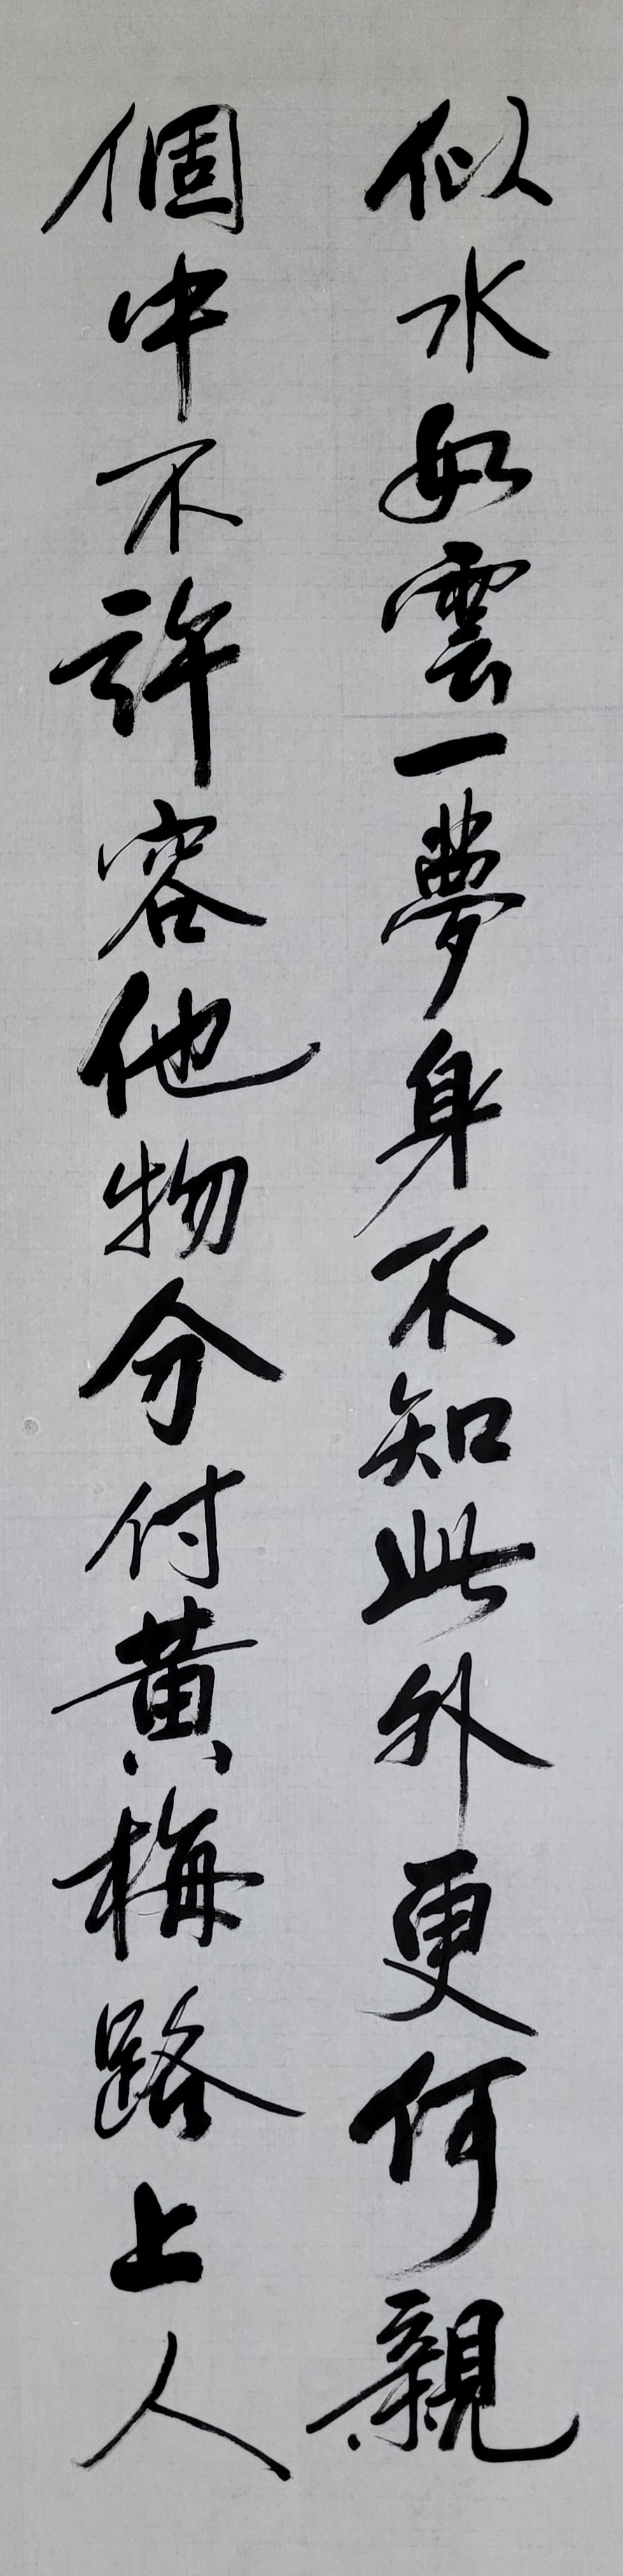 似水如雲一夢身不知此外更何親
個中不許容他物分付黃梅路上人